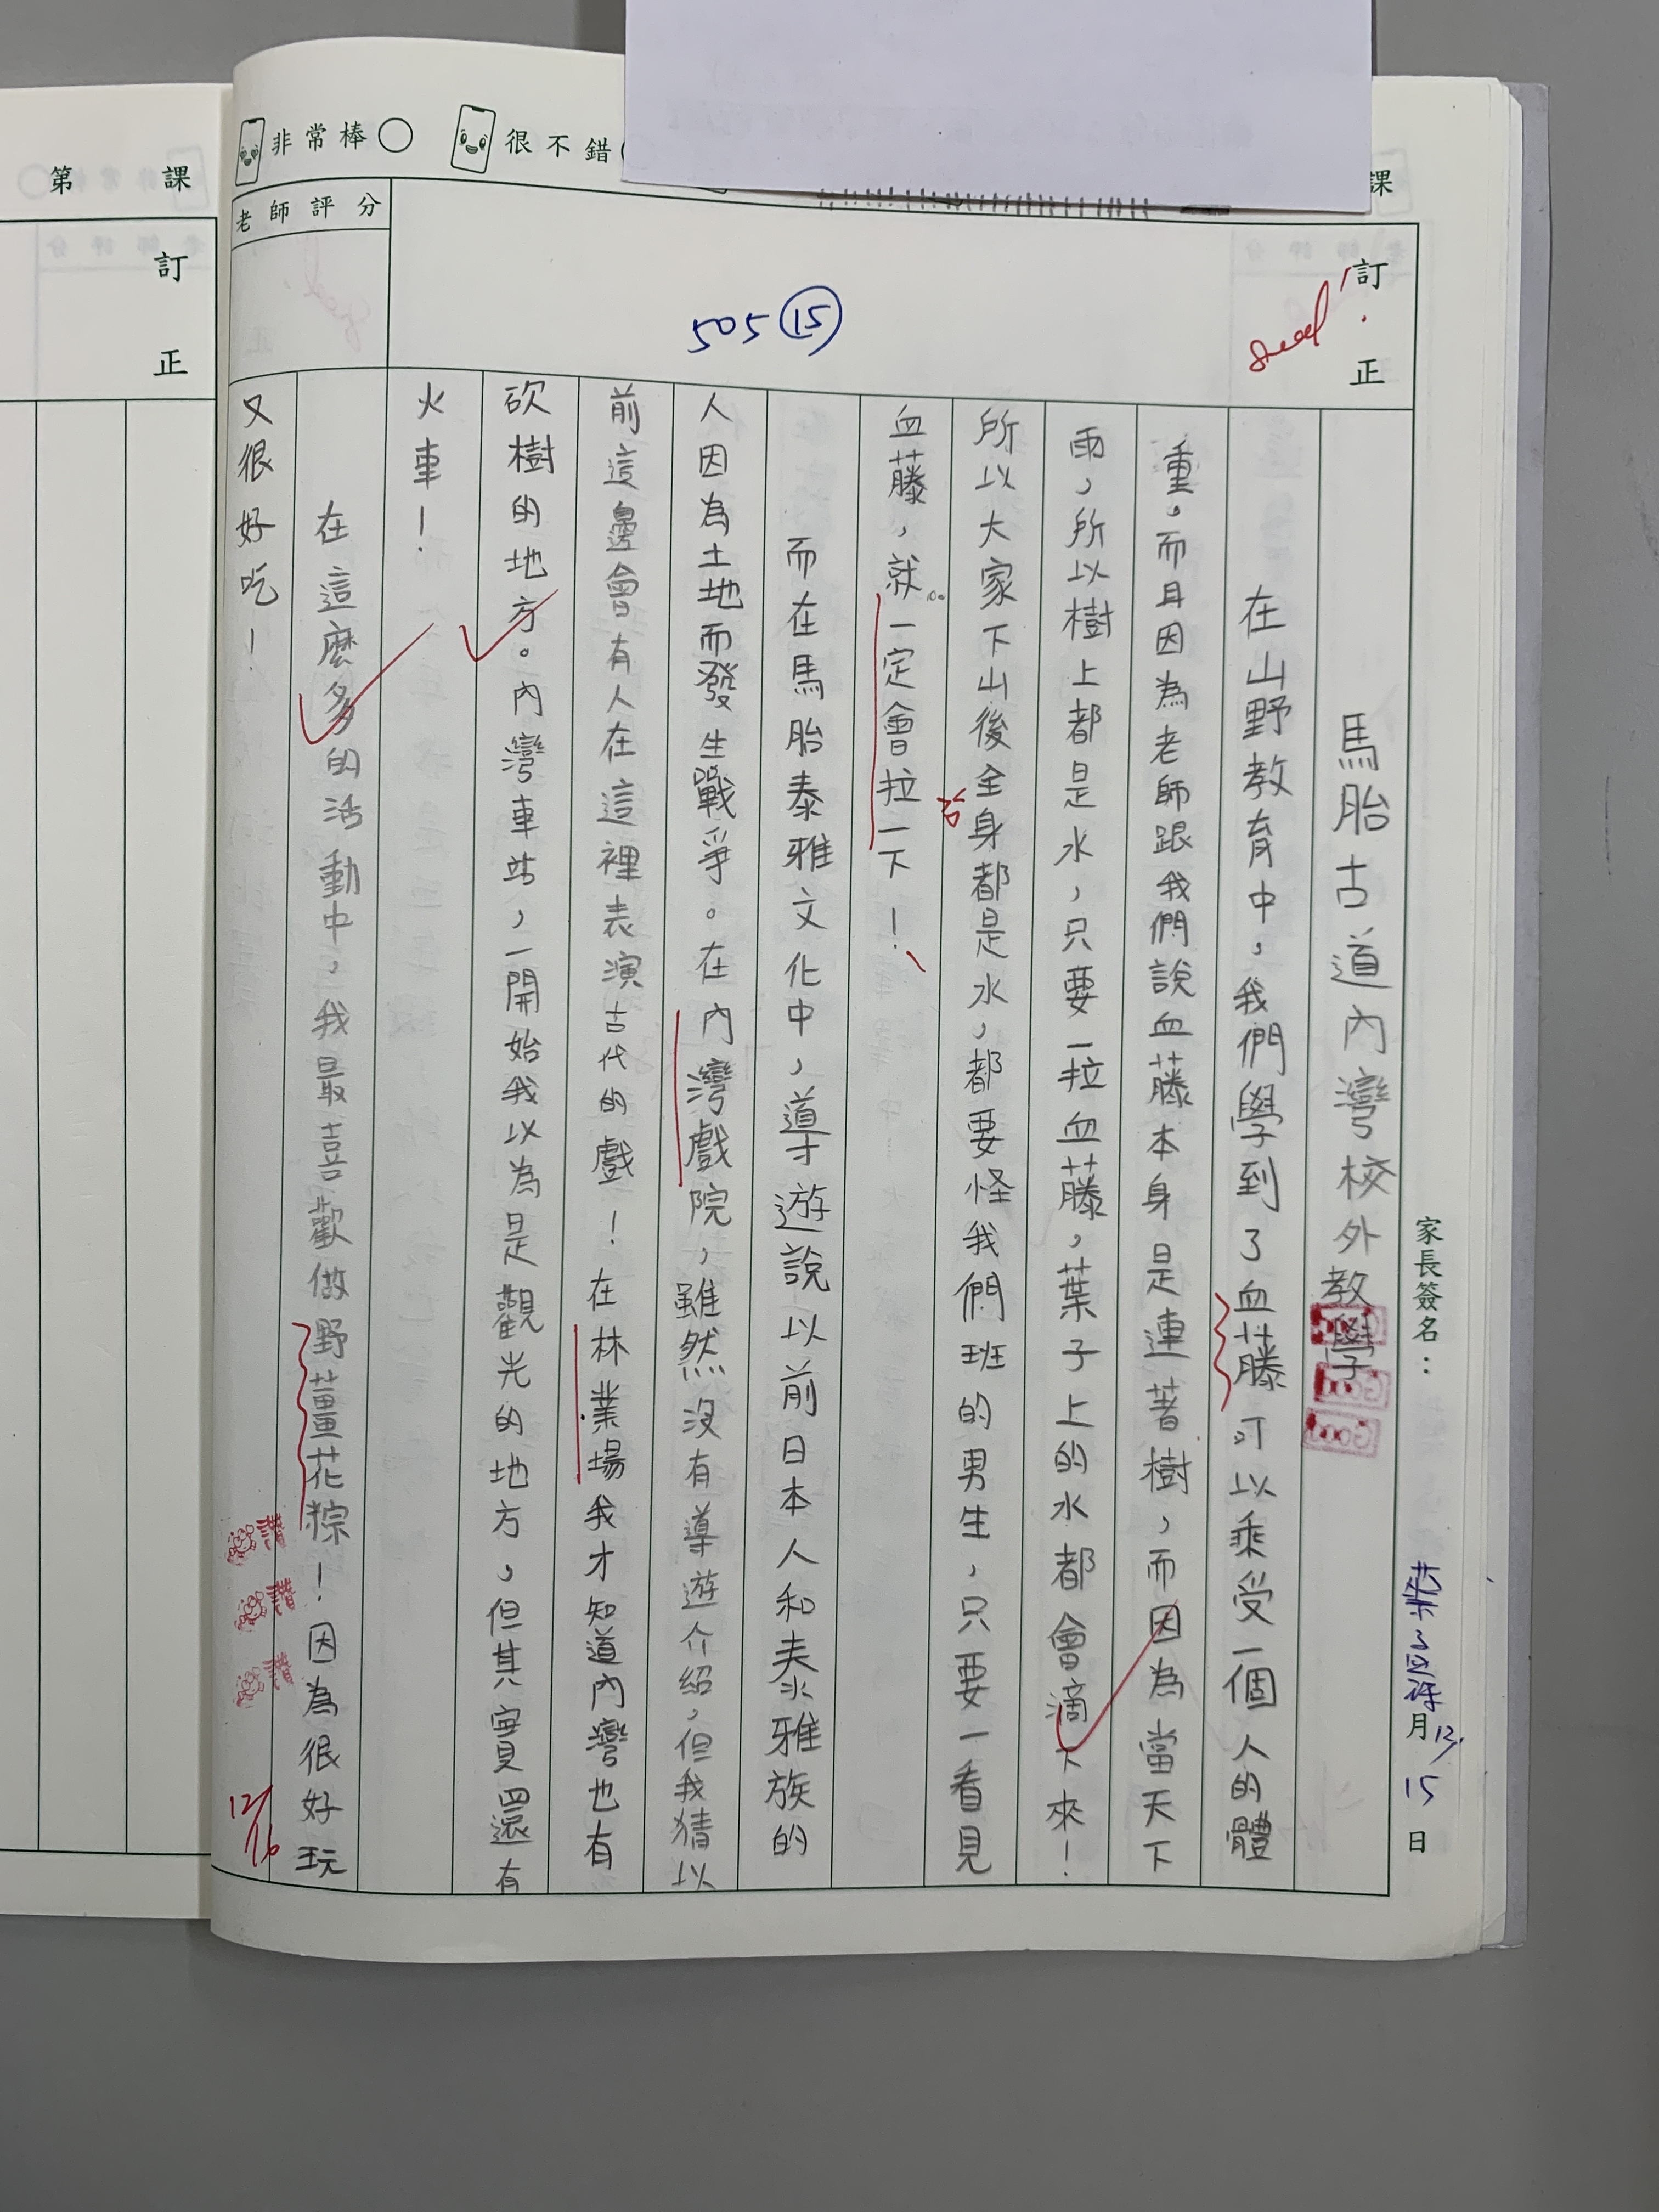 第 課
訂正
非常棒 很不錯
課
老師評分
505 15
訂正
good!
家長簽名：
12月15日
馬胎古道內灣校外教學
Good
Good
在山野教育中，我們學到了血藤可以乘受一個人的體
重。而且因為老師跟我們說血藤本身是連著樹，而因為當天下
雨，所以樹上都是水，只要一拉血藤，葉子上的水都會滴下來！
所以大家下山後全身都是水，都要怪我們班的男生，只要一看見
血藤，就一定會拉一下！
而在馬胎泰雅文化中，導遊說以前日本人和泰雅族的
人因為土地而發生戰爭。在內灣戲院，雖然沒有導遊介紹，但我猜以
前這邊會有人在這裡表演古代的戲！在林業場我才知道內灣也有
砍樹的地方。內灣車站，一開始我以為是觀光的地方，但其實還有
火車！
在這麼多的活動中，我最喜歡做野薑花粽！因為很好玩
又很好吃！
讚
讚
讚
12/16